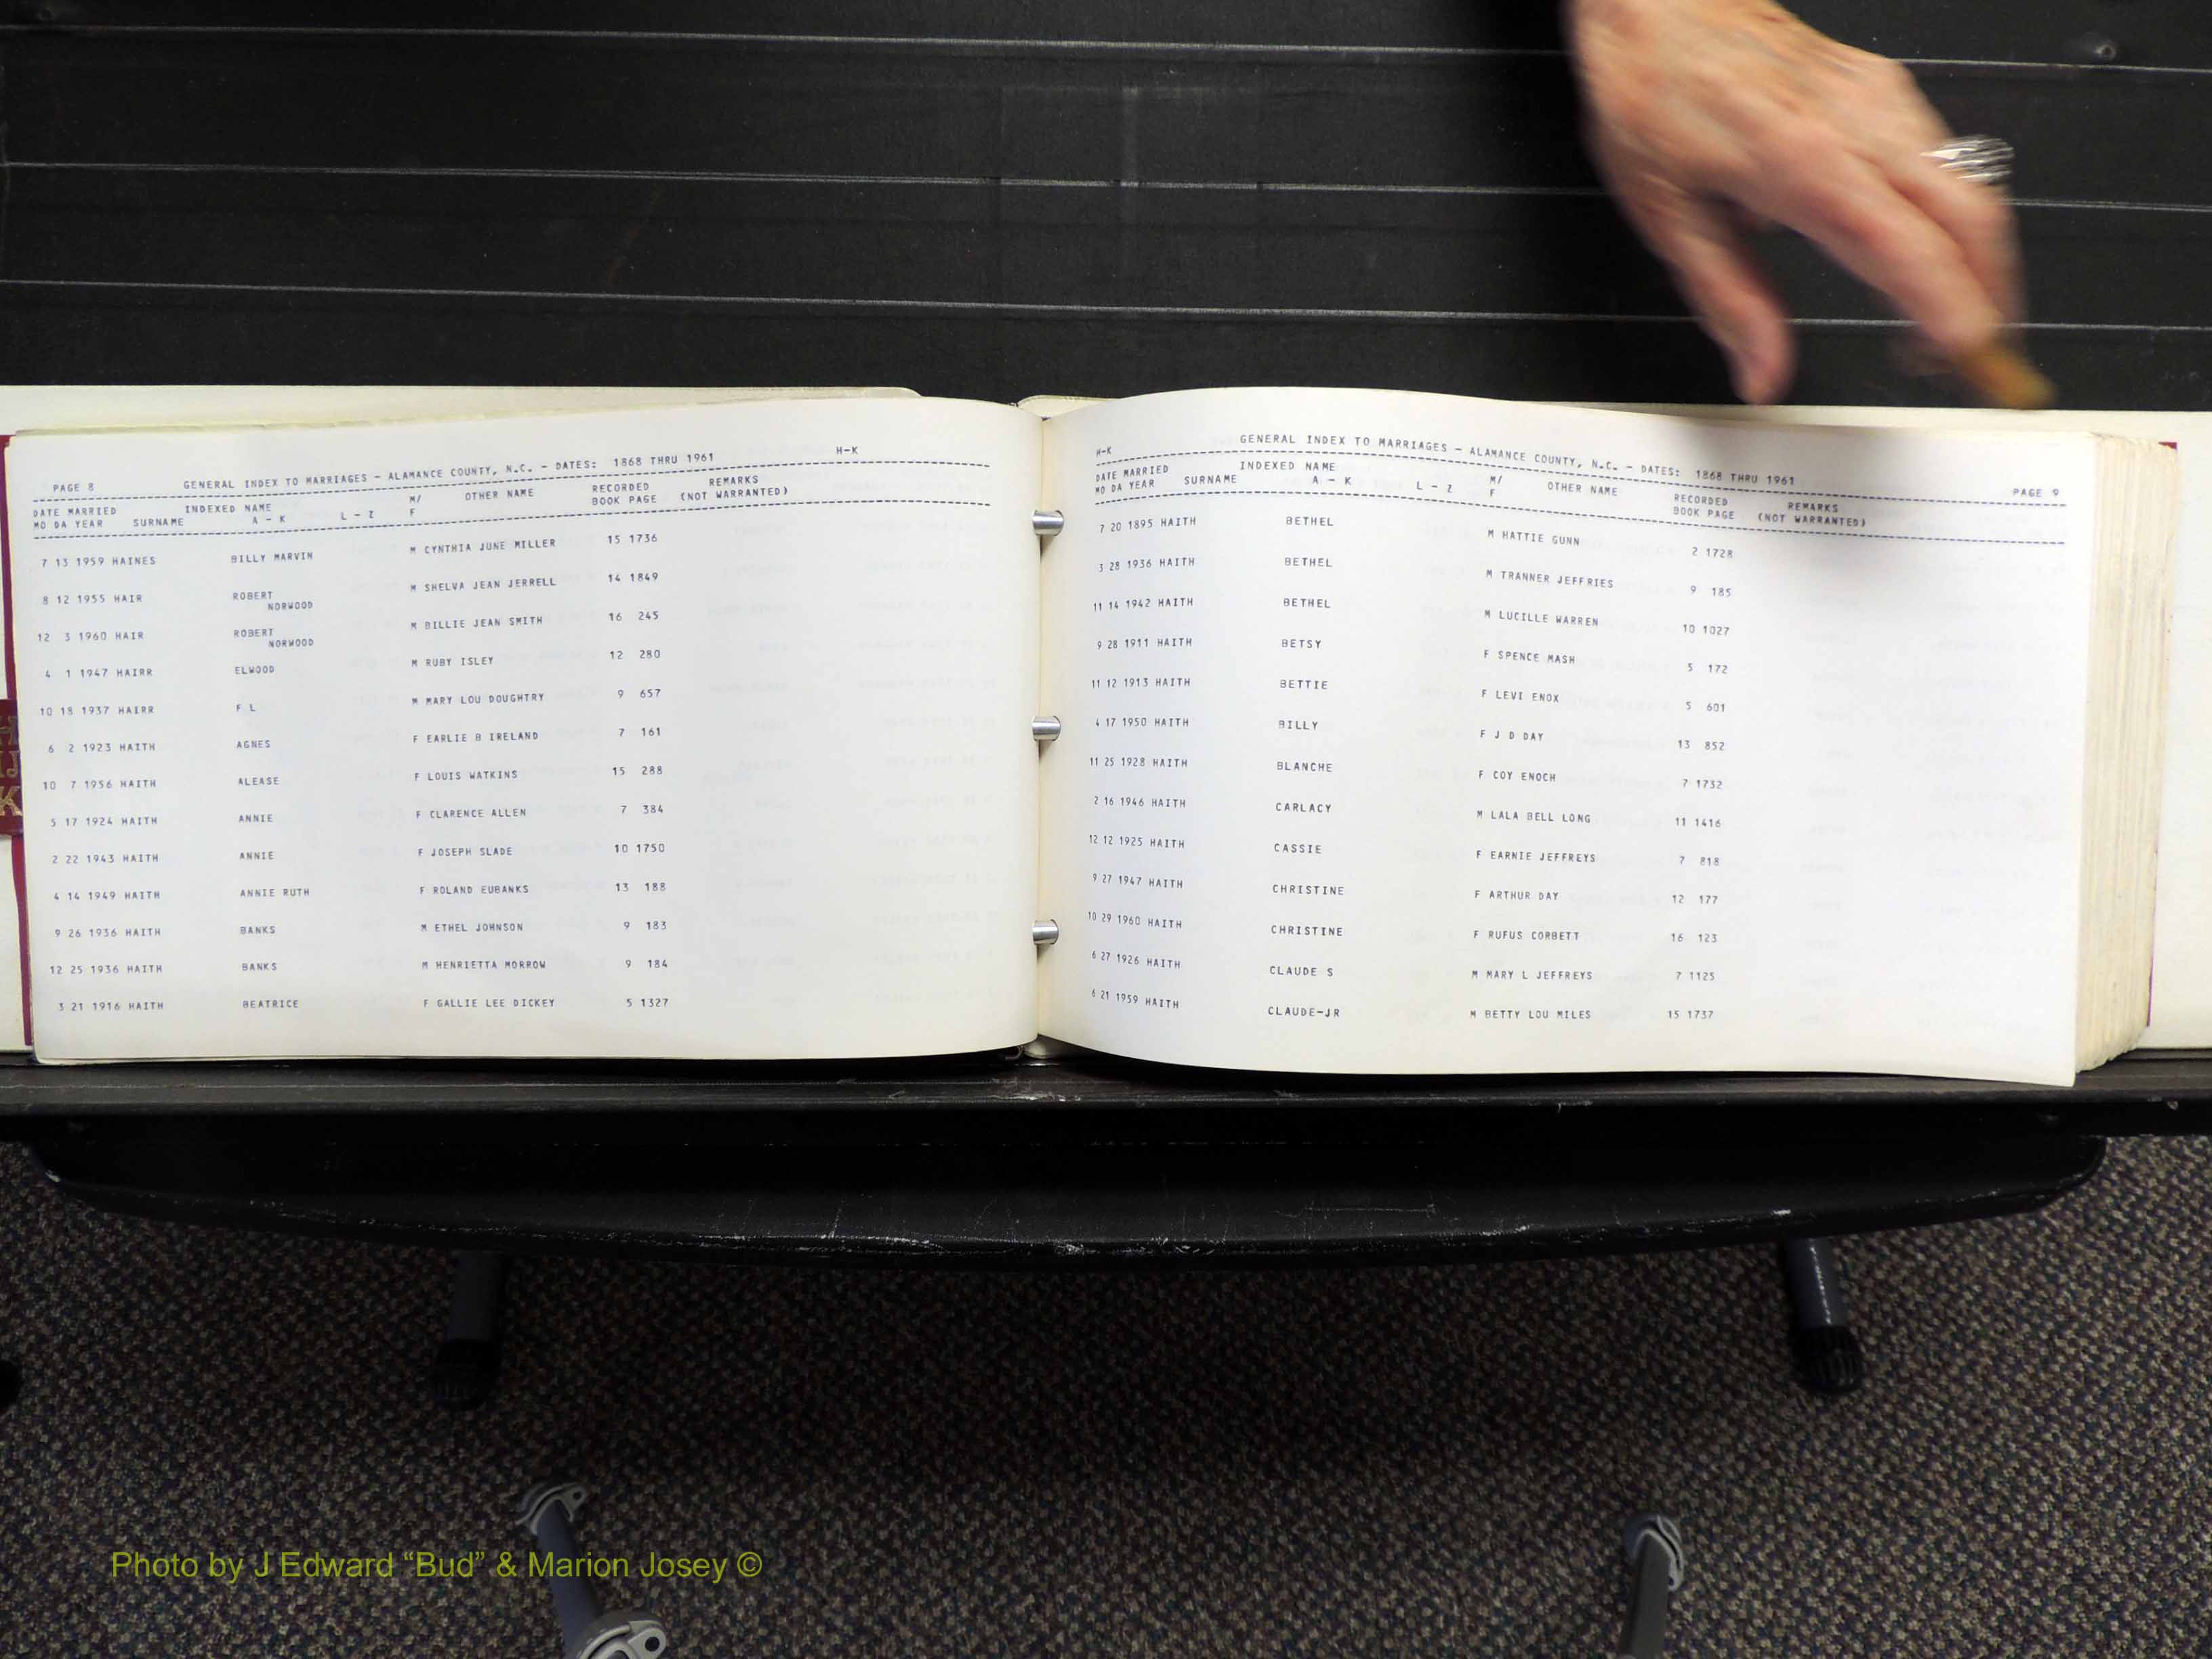 PAGE 8 GENERAL INDEX TO MARRIAGES - ALAMANCE COUNTY, N.C. - DATES: 1868 THRU 1961 H-K
DATE MARRIED INDEXED NAME M/ OTHER NAME RECORDED REMARKS
MO DA YEAR SURNAME A - K L - Z F BOOK PAGE (NOT WARRANTED)
7 13 1959 HAINES BILLY MARVIN M CYNTHIA JUNE MILLER 15 1736
8 12 1955 HAIR ROBERT M SHELVA JEAN JERRELL 14 1849
NORWOOD
12 3 1960 HAIR ROBERT M BILLIE JEAN SMITH 16 245
NORWOOD
4 1 1947 HAIRR ELWOOD M RUBY ISLEY 12 280
10 18 1937 HAIRR F L M MARY LOU DOUGHTRY 9 657
6 2 1923 HAITH AGNES F EARLIE B IRELAND 7 161
10 7 1956 HAITH ALEASE F LOUIS WATKINS 15 288
5 17 1924 HAITH ANNIE F CLARENCE ALLEN 7 384
2 22 1943 HAITH ANNIE F JOSEPH SLADE 10 1750
4 14 1949 HAITH ANNIE RUTH F ROLAND EUBANKS 13 188
9 26 1936 HAITH BANKS M ETHEL JOHNSON 9 183
12 25 1936 HAITH BANKS M HENRIETTA MORROW 9 184
3 21 1916 HAITH BEATRICE F GALLIE LEE DICKEY 5 1327
H-K GENERAL INDEX TO MARRIAGES - ALAMANCE COUNTY, N.C. - DATES: 1868 THRU 1961 PAGE 9
DATE MARRIED INDEXED NAME M/ OTHER NAME RECORDED REMARKS
MO DA YEAR SURNAME A - K L - Z F BOOK PAGE (NOT WARRANTED)
7 20 1895 HAITH BETHEL M HATTIE GUNN 2 1728
3 28 1936 HAITH BETHEL M TRANNER JEFFRIES 9 185
11 14 1942 HAITH BETHEL M LUCILLE WARREN 10 1027
9 28 1911 HAITH BETSY F SPENCE MASH 5 172
11 12 1913 HAITH BETTIE F LEVI ENOX 5 601
4 17 1950 HAITH BILLY F J D DAY 13 852
11 25 1928 HAITH BLANCHE F COY ENOCH 7 1732
2 16 1946 HAITH CARLACY M LALA BELL LONG 11 1416
12 12 1925 HAITH CASSIE F EARNIE JEFFREYS 7 818
9 27 1947 HAITH CHRISTINE F ARTHUR DAY 12 177
10 29 1960 HAITH CHRISTINE F RUFUS CORBETT 16 123
6 27 1926 HAITH CLAUDE S M MARY L JEFFREYS 7 1125
6 21 1959 HAITH CLAUDE-JR M BETTY LOU MILES 15 1737
Photo by J Edward “Bud” & Marion Josey ©